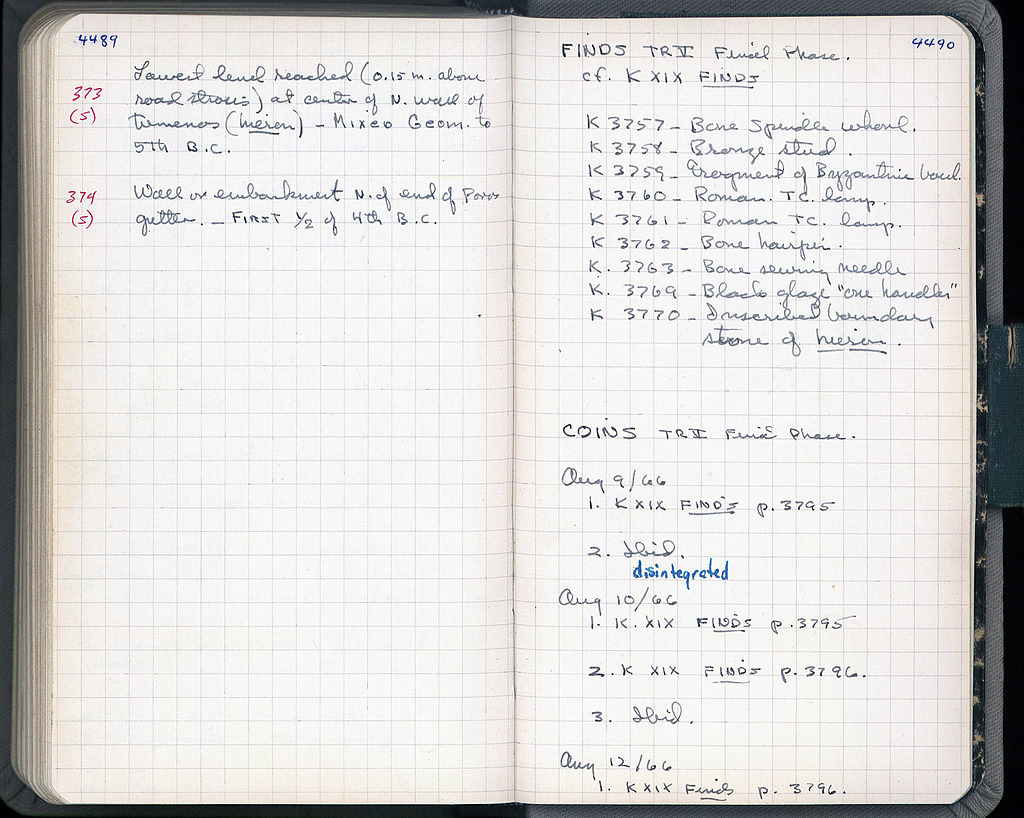 4489
Lowest level reached (0.15 m. above
373 road strosis) at center of N. wall of
(5) temenos (hieron) – Mixed Geom. to
5th B.C.
374 Wall or embankment N. of end of Poros
(5) gutter. – FIRST 1/2 of 4th B.C.
4490
FINDS TR II Final Phase.
cf. K XIX FINDS
K 3757 – Bone Spindle whorl.
K 3758 – Bronze stud.
K 3759 – Fragment of Byzantine bowl.
K 3760 – Roman. TC. lamp.
K 3761 – Roman TC. lamp.
K 3762 – Bone hairpin.
K. 3763 – Bone sewing needle
K. 3769 – Black glaze "one handler"
K 3770 – Inscribed boundary
stone of hieron.
COINS TR II Final Phase.
Aug 9/66
1. K XIX FINDS p. 3795
2. Ibid.
disintegrated
Aug 10/66
1. K. XIX FINDS p. 3795
2. K XIX FINDS p. 3796.
3. Ibid.
Aug 12/66
1. K XIX Finds p. 3796.